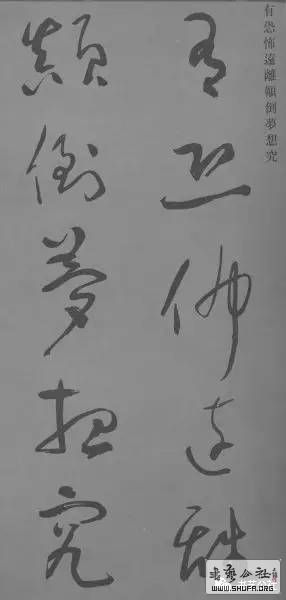 有恐怖遠離顛倒夢想究
有恐怖遠離
顛倒夢想究
書藝公社
WWW.SHUFA.ORG